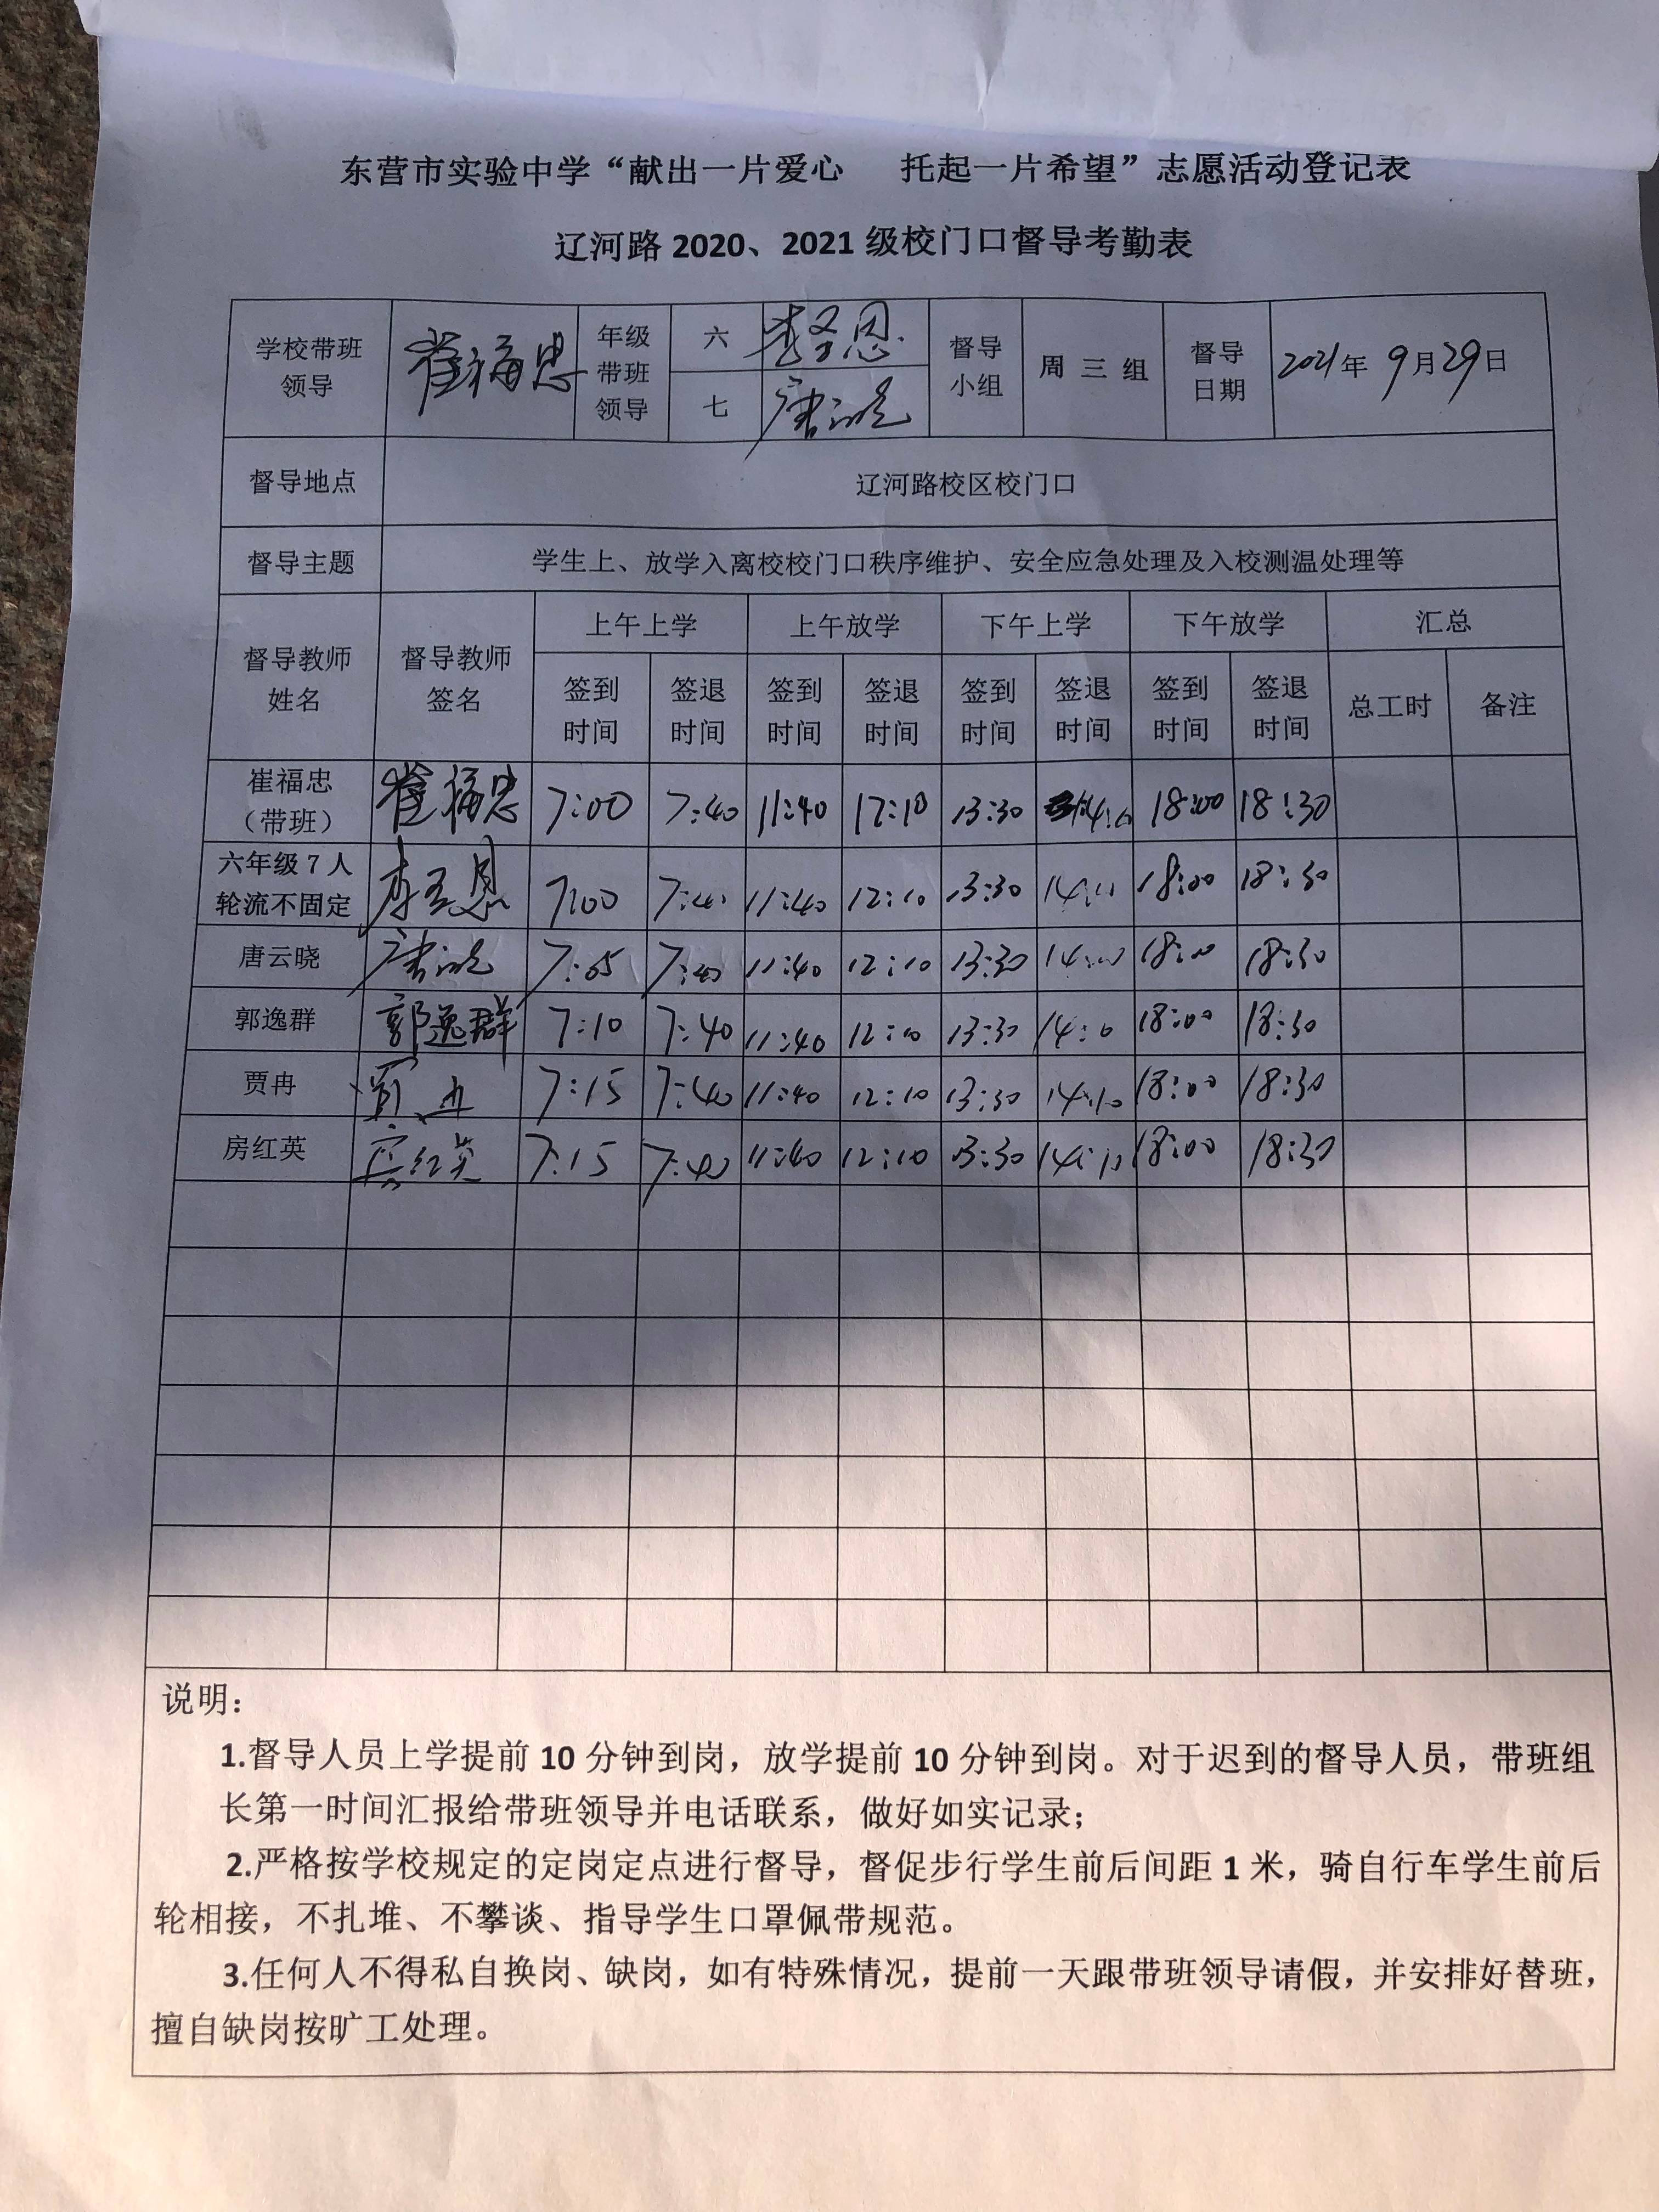 东营市实验中学“献出一片爱心 托起一片希望”志愿活动登记表
辽河路 2020、2021 级校门口督导考勤表
学校带班领导 崔福忠 年级带班领导 六 李圣恩 督导小组 周三组 督导日期 2021年 9月29日
七 唐云晓
督导地点 辽河路校区校门口
督导主题 学生上、放学入离校校门口秩序维护、安全应急处理及入校测温处理等
督导教师姓名 督导教师签名 上午上学 上午放学 下午上学 下午放学 汇总
签到时间 签退时间 签到时间 签退时间 签到时间 签退时间 签到时间 签退时间 总工时 备注
崔福忠（带班） 崔福忠 7:00 7:40 11:40 12:10 13:30 18:00 18:30
六年级7人轮流不固定 李圣恩 7:00 7:40 11:40 12:10 13:30 18:00 18:30
唐云晓 唐云晓 7:05 7:40 11:40 12:10 13:30 18:00 18:30
郭逸群 郭逸群 7:10 7:40 11:40 12:10 13:30 18:00 18:30
贾冉 贾冉 7:15 7:40 11:40 12:10 13:30 14:10 18:00 18:30
房红英 房红英 7:15 7:40 11:40 12:10 13:30 14:10 18:00 18:30
说明：
1.督导人员上学提前 10 分钟到岗，放学提前 10 分钟到岗。对于迟到的督导人员，带班组
长第一时间汇报给带班领导并电话联系，做好如实记录；
2.严格按学校规定的定岗定点进行督导，督促步行学生前后间距 1 米，骑自行车学生前后
轮相接，不扎堆、不攀谈、指导学生口罩佩带规范。
3.任何人不得私自换岗、缺岗，如有特殊情况，提前一天跟带班领导请假，并安排好替班，
擅自缺岗按旷工处理。